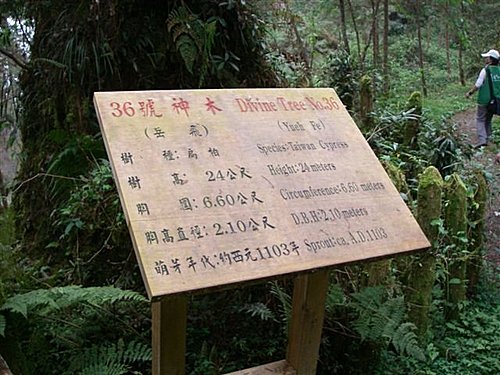 36號神木 Divine Tree No.36
(岳飛) (Yueh Fe)
樹種:扁柏 Species:Taiwan Cypress
樹高:24公尺 Height:24 meters
胸圍:6.60公尺 Circumference:6.60 meters
胸高直徑:2.10公尺 D.B.H:2.10 meters
萌芽年代:約西元1103年 Sprout:ca. A.D.1103